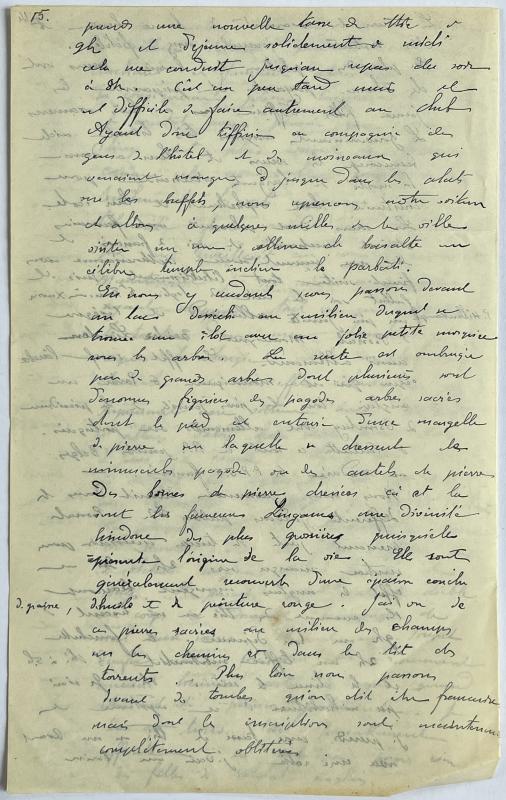 15.
prends une nouvelle tasse de thé à
9h et déjeune solidement à midi
cela me conduit jusqu'au repas du soir
à 8h. C'est un peu tard mais il
est difficile de faire autrement au club
Ayant donc tiffiné en compagnie des
gens de l'hôtel et des moineaux qui
venaient manger jusque dans les plats
sur les buffets nous reprenons notre voiture
et allons à quelques milles de la ville
visiter sur une colline de basalte un
célèbre temple indien le parbâti.
En nous y rendant nous passons devant
un lac au milieu duquel se
trouve un îlot avec une jolie petite mosquée
sous les arbres. La route est ombragée
par de grands arbres dont plusieurs sont
d'énormes figuiers des pagodes arbres sacrés
dont le pied est entouré d'une margelle
de pierre sur laquelle se dressent des
minuscules pagodes ou des autels de pierre
Des bornes de pierre dressées çà et là
sont les fameux Lingams une divinité
hindoue des plus grossières puisqu'elle
représente l'origine de la vie. Elles sont
généralement recouverts d'une épaisse couche
de graisse, d'huile et de peinture rouge. J'ai vu de
ces pierres sacrées au milieu des champs
sur les chemins et dans les lits des
torrents. Plus loin nous passons
devant des tombes qu'on dit être françaises
mais dont les inscriptions sont maintenant
complètement oblitérées